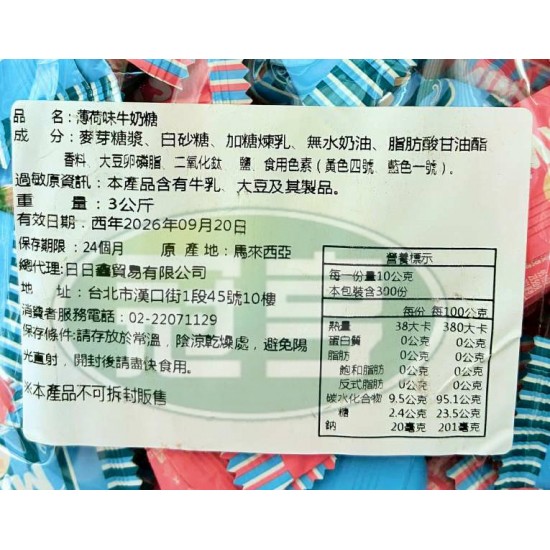 品　　名：薄荷味牛奶糖
成　　分：麥芽糖漿、白砂糖、加糖煉乳、無水奶油、脂肪酸甘油酯
香料、大豆卵磷脂、二氧化鈦、鹽、食用色素（黃色四號、藍色一號）。
過敏原資訊：本產品含有牛乳、大豆及其製品。
重　　量：3公斤
有效日期：西年2026年09月20日
保存期限：24個月　原 產 地：馬來西亞
總代理:日日鑫貿易有限公司
地　　址：台北市漢口街1段45號10樓
消費者服務電話：02-22071129
保存條件:請存放於常溫，陰涼乾燥處，避免陽
光直射，開封後請盡快食用。
※本產品不可拆封販售
營養標示
每一份量10公克
本包裝含300份
每份 每100公克
熱量 38大卡 380大卡
蛋白質 0公克 0公克
脂肪 0公克 0公克
飽和脂肪 0公克 0公克
反式脂肪 0公克 0公克
碳水化合物 9.5公克 95.1公克
糖 2.4公克 23.5公克
鈉 20毫克 201毫克